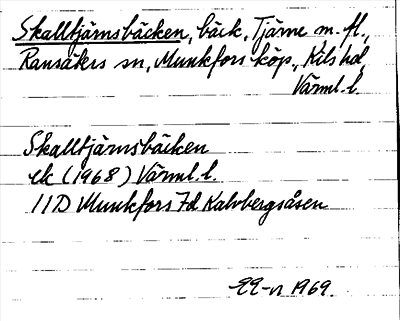 Skalltjärnsbäcken, bäck, Tjärne m. fl.,
Ransäters sn, Munkfors köp., Kils hd,
Värml. l.
Skalltjärnsbäcken
ek (1968) Värml. l.
11D Munkfors 7d Kalvbergsåsen
1969.